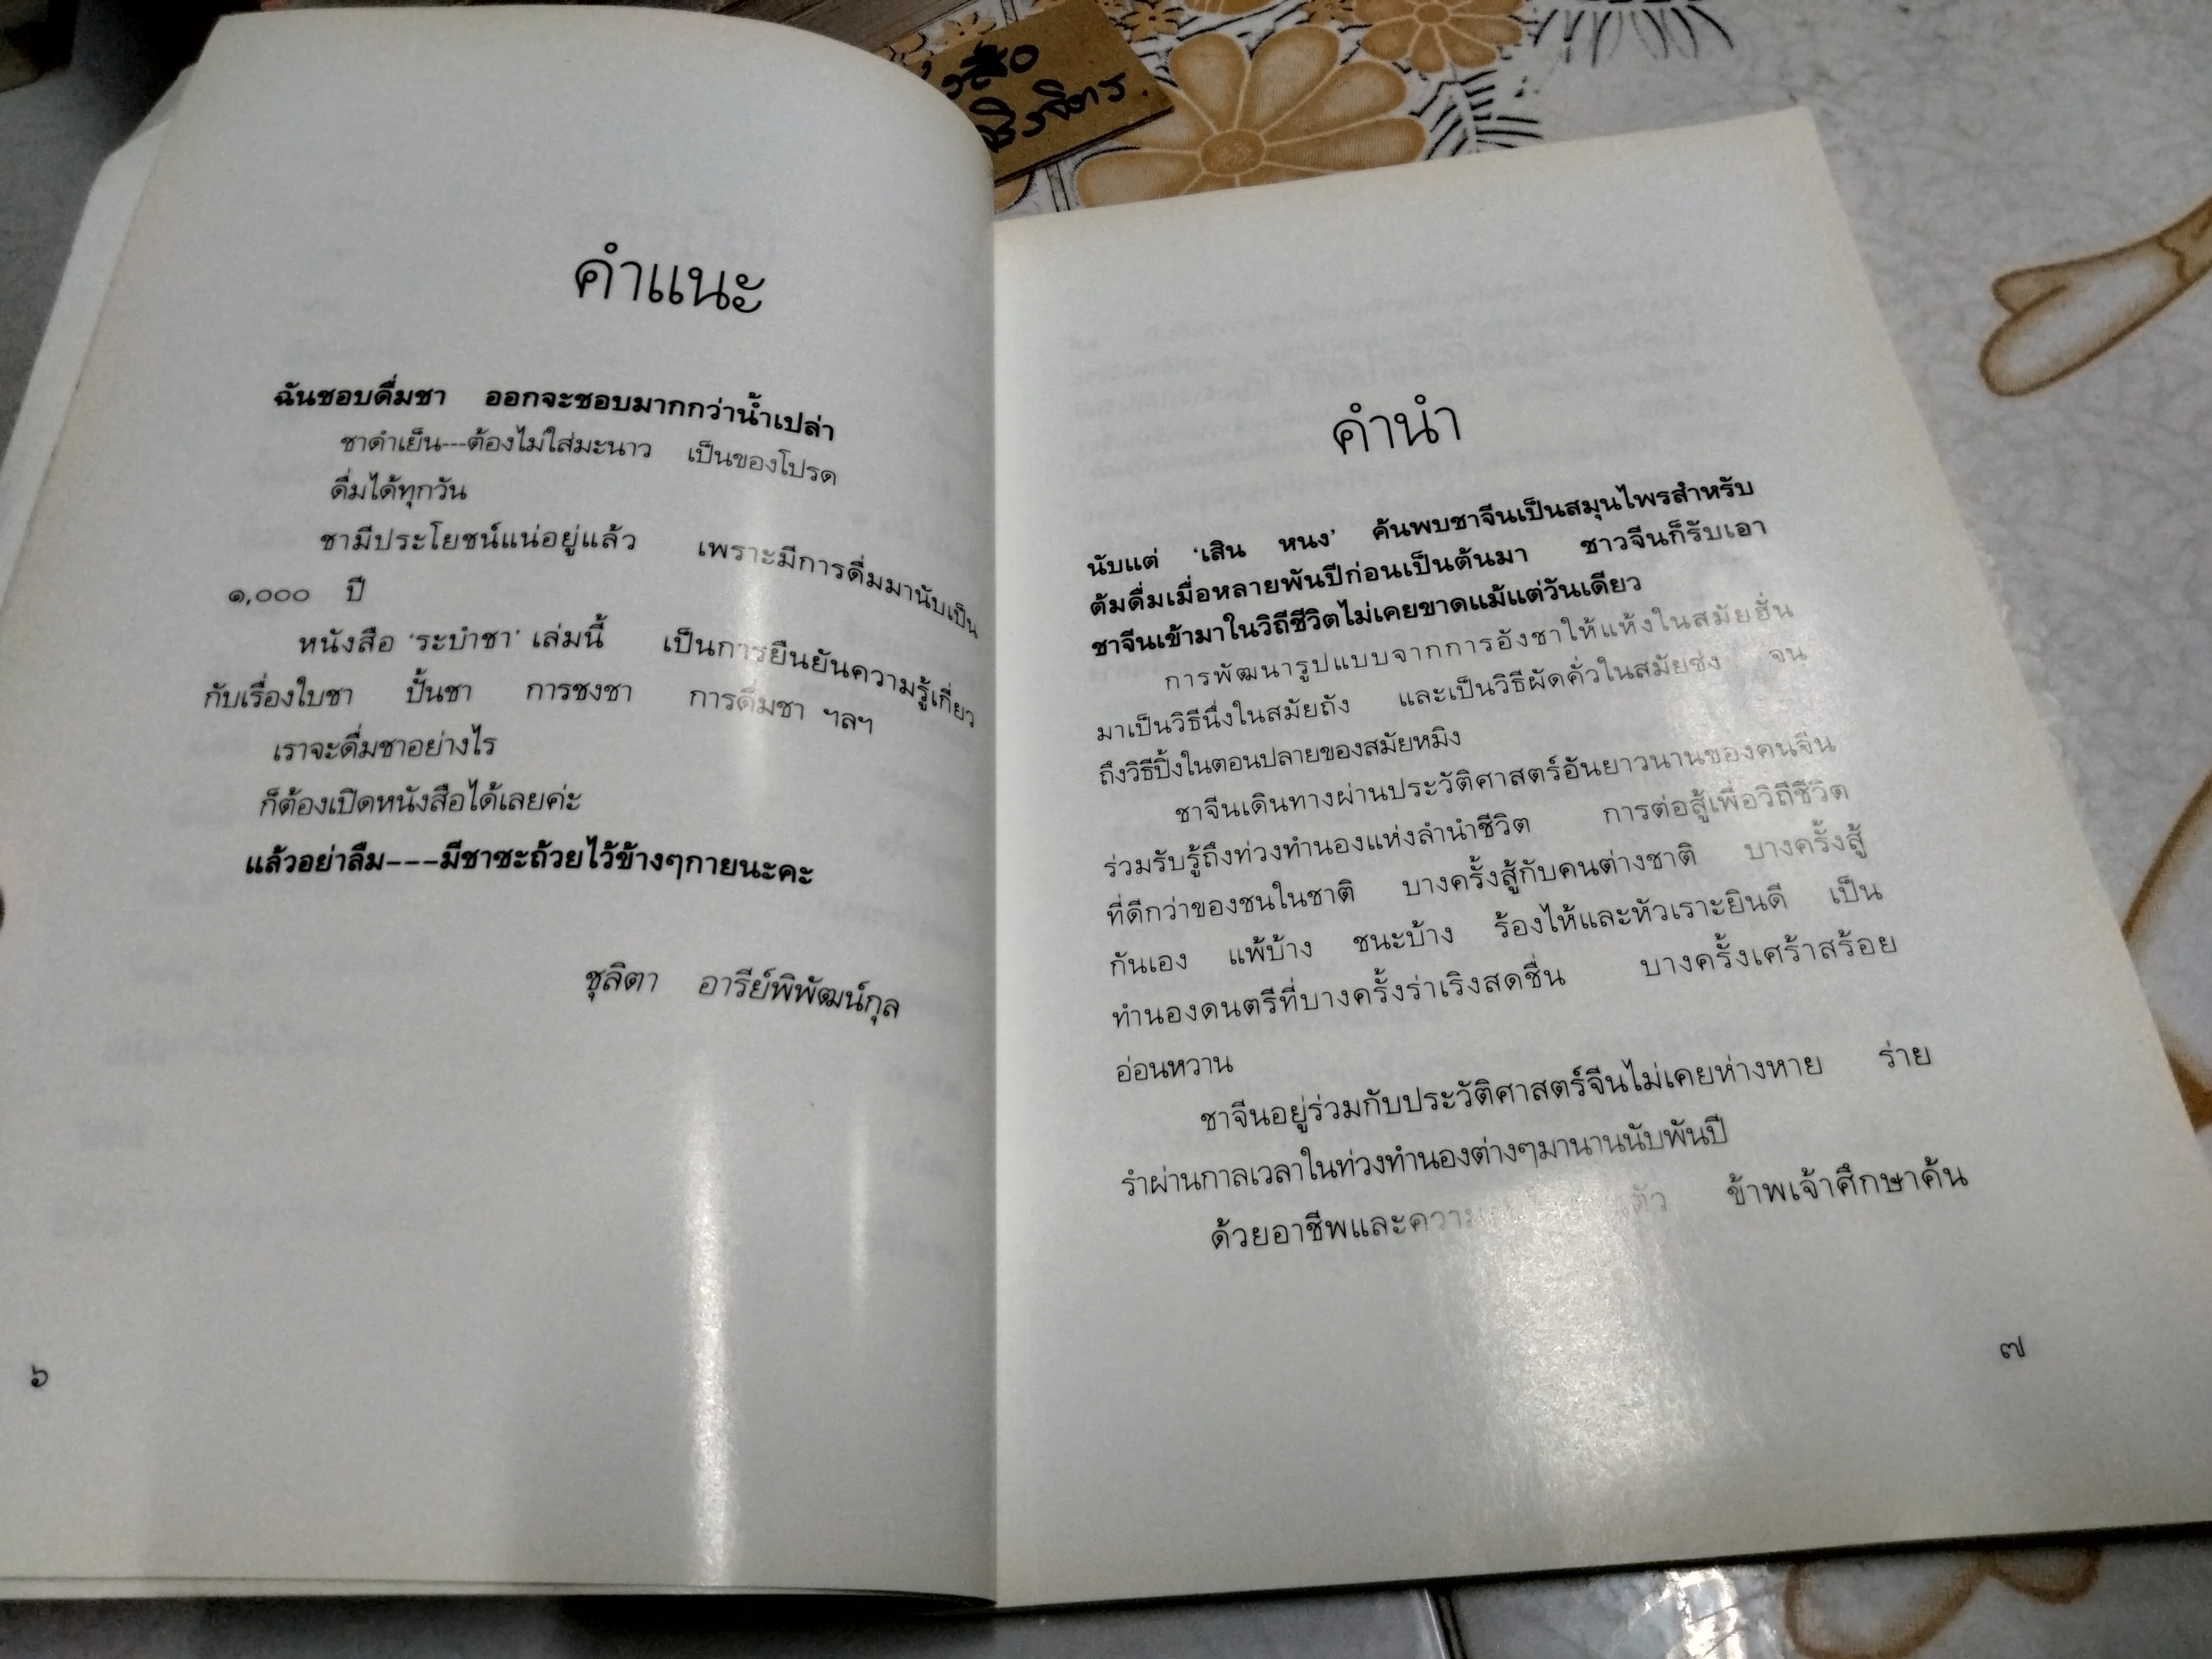 คำแนะ
ฉันชอบดื่มชา ออกจะชอบมากกว่าน้ำเปล่า
ชาดำเย็น---ต้องไม่ใส่มะนาว เป็นของโปรด
ดื่มได้ทุกวัน
ชามีประโยชน์แน่อยู่แล้ว เพราะมีการดื่มมานับเป็น
๑,๐๐๐ ปี
หนังสือ ‘ระบำชา’ เล่มนี้ เป็นการยืนยันความรู้เกี่ยว
กับเรื่องใบชา ปั้นชา การชงชา การดื่มชา ฯลฯ
เราจะดื่มชาอย่างไร
ก็ต้องเปิดหนังสือได้เลยค่ะ
แล้วอย่าลืม---มีชาซะถ้วยไว้ข้างๆกายนะคะ
ชุลิตา อารีย์พิพัฒน์กุล
๖
คำนำ
นับแต่ ‘เสิน หนง’ ค้นพบชาจีนเป็นสมุนไพรสำหรับ
ต้มดื่มเมื่อหลายพันปีก่อนเป็นต้นมา ชาวจีนก็รับเอา
ชาจีนเข้ามาในวิถีชีวิตไม่เคยขาดแม้แต่วันเดียว
การพัฒนารูปแบบจากการอังชาให้แห้งในสมัยฮั่น
มาเป็นวิธีนึ่งในสมัยถัง และเป็นวิธีผัดคั่วในสมัยซ่ง จน
ถึงวิธีปิ้งในตอนปลายของสมัยหมิง
ชาจีนเดินทางผ่านประวัติศาสตร์อันยาวนานของคนจีน
ร่วมรับรู้ถึงท่วงทำนองแห่งลำนำชีวิต การต่อสู้เพื่อวิถีชีวิต
ที่ดีกว่าของชนในชาติ บางครั้งสู้กับคนต่างชาติ บางครั้งสู้
กันเอง แพ้บ้าง ชนะบ้าง ร้องไห้และหัวเราะยินดี เป็น
ทำนองดนตรีที่บางครั้งร่าเริงสดชื่น บางครั้งเศร้าสร้อย
อ่อนหวาน
ชาจีนอยู่ร่วมกับประวัติศาสตร์จีนไม่เคยห่างหาย ร่าย
รำผ่านกาลเวลาในท่วงทำนองต่างๆมานานนับพันปี
ด้วยอาชีพและ ข้าพเจ้าศึกษาค้น
๗